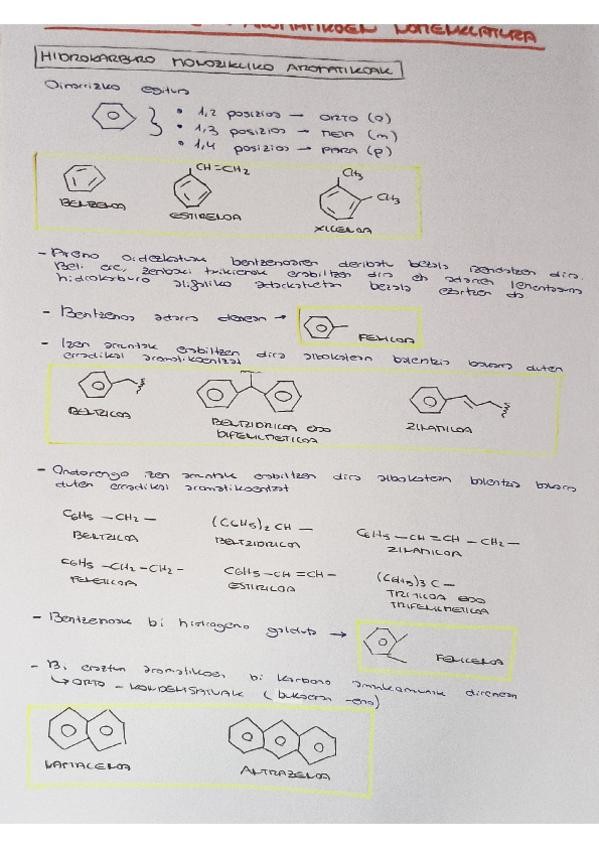 AROMATIKOEN NOMENKLATURA
HIDROKARBURO MONOZIKLIKO AROMATIKOAK
Oinarrizko egitura
• 1,2 posizioa → ORTO (o)
• 1,3 posizioa → META (m)
• 1,4 posizioa → PARA (p)
CH=CH2
CH3
CH3
BENTZENOA
ESTIRENOA
XILENOA
- ordezkatuak bentzenoaren deribatu bezala izendatzen dira.
Beti ere, zenbaki txikienak erabiltzen dira eta adarren lehentasuna
hidrokarburo alifatiko adarkatuetan bezala ezartzen da
- Bentzenoa adarra denean →
FENILOA
- Izen arruntak erabiltzen dira albokatean balentzia bakarra duten
erradikal aromatikoentzat
BENTZILOA
BENTZIDRILOA edo
DIFENILMETILOA
ZINAMILOA
- Ondorengo izen arruntak erabiltzen dira albokatean balentzia bakarra
duten erradikal aromatikoentzat
C6H5 - CH2 -
BENTZILOA
(C6H5)2 CH -
BENTZIDRILOA
C6H5 - CH = CH - CH2 -
ZINAMILOA
C6H5 - CH2 - CH2 -
FENETILOA
C6H5 - CH = CH -
ESTIRILOA
(C6H5)3 C -
TRITILOA edo
TRIFENILMETILOA
- Bentzenoak bi hidrogeno galduta →
FENILENOA
- Bi eraztun aromatikoen bi karbono amankomunak direnean
↳ ORTO - KONDENSATUAK (bukaera -eno)
NAFTALENOA
ANTRAZENOA